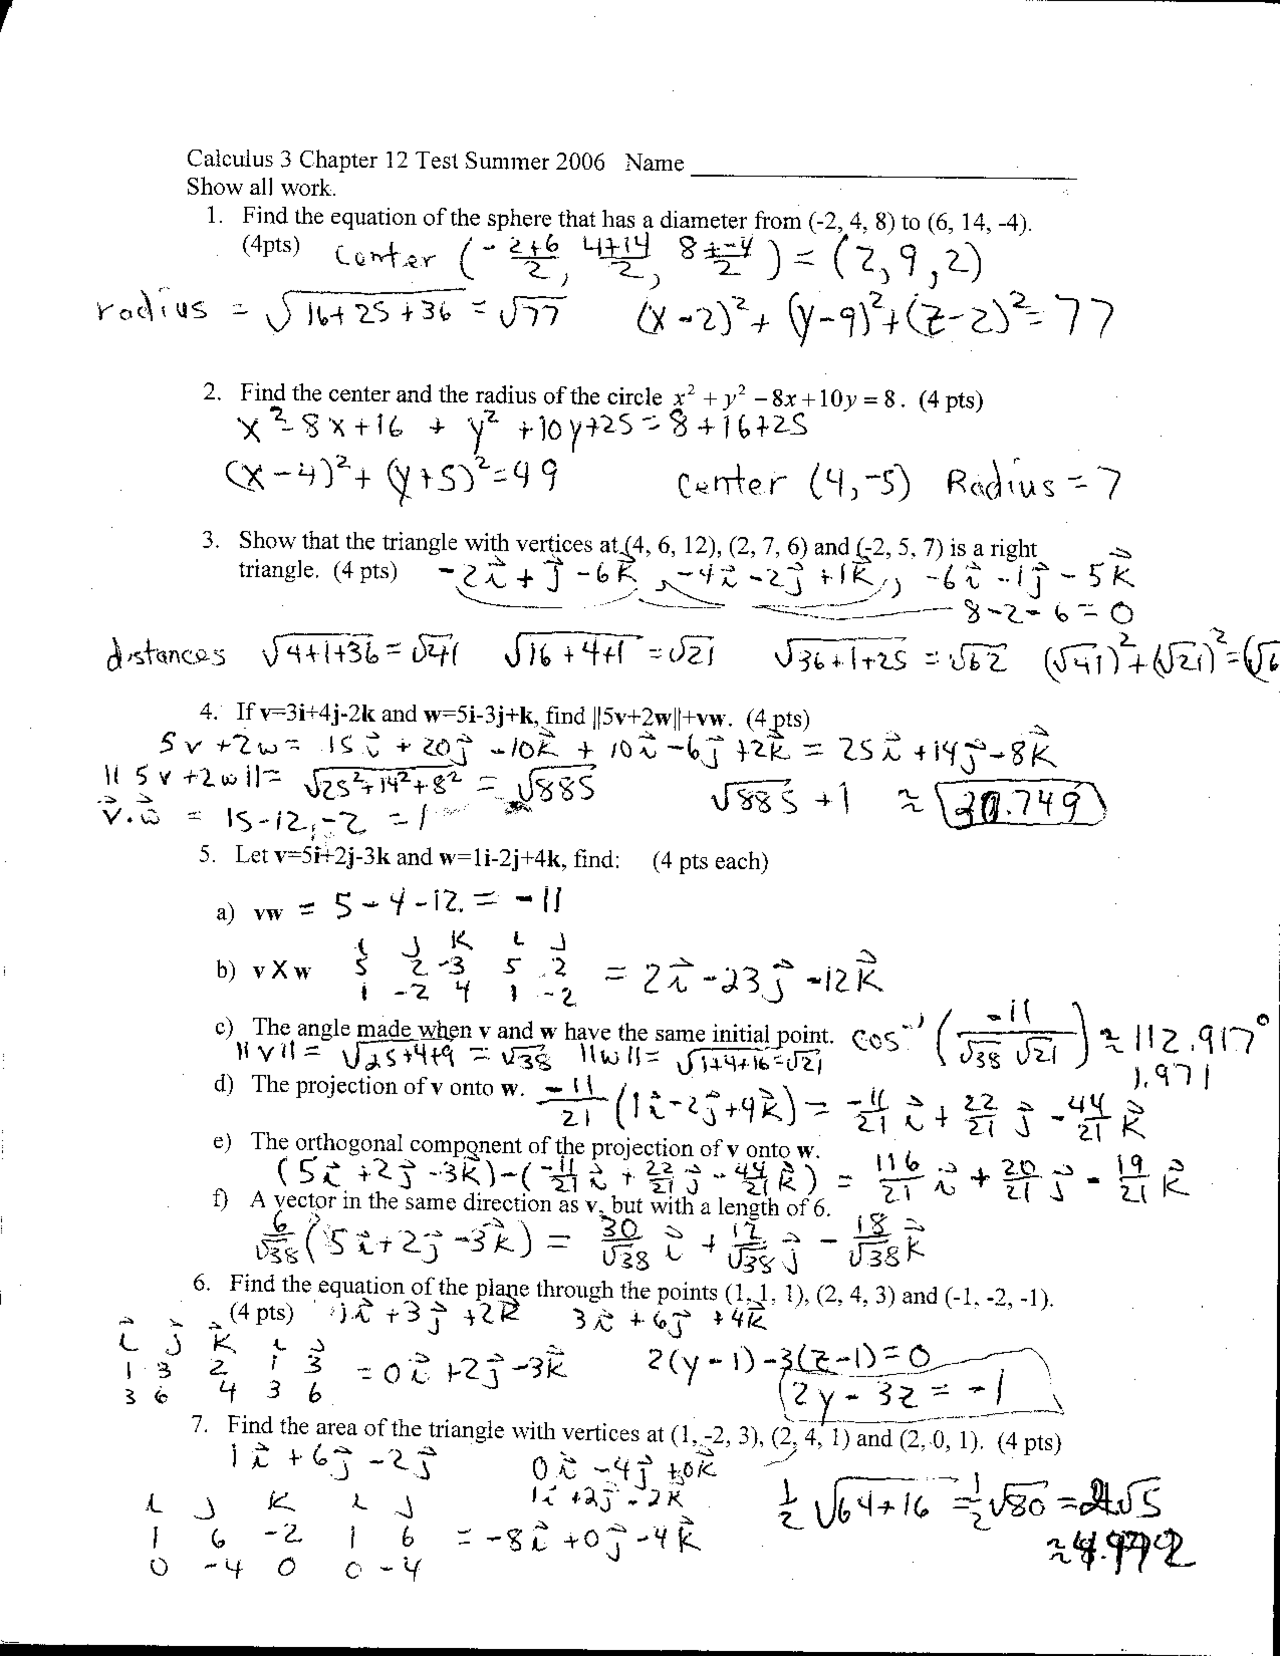 Calculus 3 Chapter 12 Test Summer 2006 Name
Show all work.
1. Find the equation of the sphere that has a diameter from (-2, 4, 8) to (6, 14, -4).
(4pts) Center (-2+6/2, 4+14/2, 8+-4/2) = (2, 9, 2)
radius = √16+25+36 = √77 (x-2)² + (y-9)² + (z-2)² = 77
2. Find the center and the radius of the circle x² + y² − 8x + 10y = 8. (4 pts)
x² - 8x + 16 + y² + 10y + 25 = 8 + 16 + 25
(x-4)² + (y+5)² = 49 Center (4, -5) Radius = 7
3. Show that the triangle with vertices at (4, 6, 12), (2, 7, 6) and (-2, 5, 7) is a right
triangle. (4 pts) -2i⃗ + j⃗ - 6k⃗, -4i⃗ - 2j⃗ + 1k⃗, -6i⃗ - 1j⃗ - 5k⃗
8 - 2 - 6 = 0
distances √4+1+36 = √41 √16+4+1 = √21 √36+1+25 = √62 (√41)² + (√21)² = (√6
4. If v=3i+4j-2k and w=5i-3j+k, find ||5v+2w||+vw. (4 pts)
5v + 2w = 15i⃗ + 20j⃗ - 10k⃗ + 10i⃗ - 6j⃗ + 2k⃗ = 25i⃗ + 14j⃗ - 8k⃗
||5v + 2w|| = √25²+14²+8² = √885 √885 + 1 ≈ 30.749
v⃗·w⃗ = 15 - 12 - 2 = 1
5. Let v=5i+2j-3k and w=1i-2j+4k, find: (4 pts each)
a) vw = 5 - 4 - 12 = -11
i j k i j
b) v X w 5 2 -3 5 2 = 2i⃗ - 23j⃗ - 12k⃗
1 -2 4 1 -2
c) The angle made when v and w have the same initial point. cos⁻¹(-11/√38 √21) ≈ 112.917°
||v|| = √25+4+9 = √38 ||w|| = √1+4+16 = √21 1.971
d) The projection of v onto w. -11/21 (1i⃗ - 2j⃗ + 4k⃗) = -11/21 i⃗ + 22/21 j⃗ - 44/21 k⃗
e) The orthogonal component of the projection of v onto w.
(5i⃗ + 2j⃗ - 3k⃗) - (-11/21 i⃗ + 22/21 j⃗ - 44/21 k⃗) = 116/21 i⃗ + 20/21 j⃗ - 19/21 k⃗
f) A vector in the same direction as v, but with a length of 6.
6/√38 (5i⃗ + 2j⃗ - 3k⃗) = 30/√38 i⃗ + 12/√38 j⃗ - 18/√38 k⃗
6. Find the equation of the plane through the points (1, 1, 1), (2, 4, 3) and (-1, -2, -1).
(4 pts) 1i⃗ + 3j⃗ + 2k⃗ 3i⃗ + 6j⃗ + 4k⃗
i⃗ j⃗ k⃗ i j⃗
1 3 2 1 3 = 0i⃗ + 2j⃗ - 3k⃗ 2(y-1) - 3(z-1) = 0
3 6 4 3 6 2y - 3z = -1
7. Find the area of the triangle with vertices at (1, -2, 3), (2, 4, 1) and (2, 0, 1). (4 pts)
1i⃗ + 6j⃗ - 2j⃗ 0i⃗ - 4j⃗ + 0k⃗
1i + 2j - 2k
i j k i j
1 6 -2 1 6 = -8i⃗ + 0j⃗ - 4k⃗ 1/2 √64+16 = 1/2 √80 = 2√5
0 -4 0 0 -4